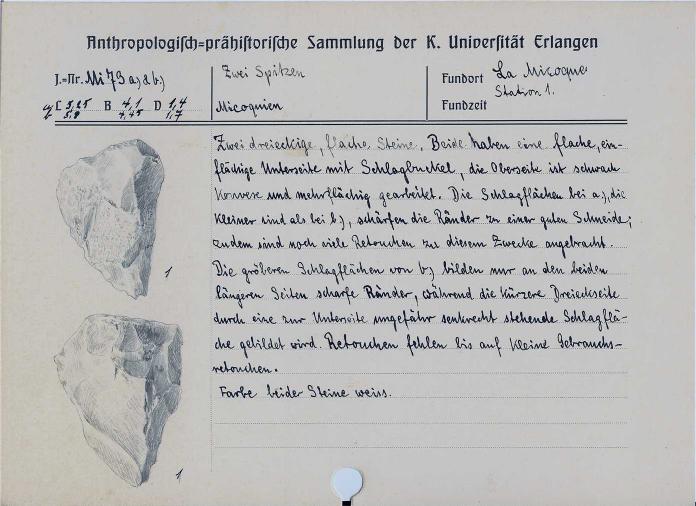 Anthropologisch-prähistorische Sammlung der K. Universität Erlangen
J.-Nr. Mi 73 a) & b)
Zwei Spitzen
Fundort La Micoque
Station 1.
L 5,25 B 4,1 D 1,4
5,8 4,45 1,7
Micoquien
Fundzeit
Zwei dreieckige, flache Steine. Beide haben eine flache, ein-
flächige Unterseite mit Schlagbuckel, die Oberseite ist schwach
konvex und mehrflächig gearbeitet. Die Schlagflächen bei a), die
kleiner sind als bei b), schärfen die Ränder zu einer guten Schneide;
zudem sind noch viele Retouchen zu diesem Zwecke angebracht.
Die gröberen Schlagflächen von b) bilden nur an den beiden
längeren Seiten scharfe Ränder, während die kürzere Dreieckseite
durch eine zur Unterseite ungefähr senkrecht stehende Schlagflä-
che gebildet wird. Retouchen fehlen bis auf kleine Gebrauchs-
retouchen.
Farbe beider Steine weiss.
1
1